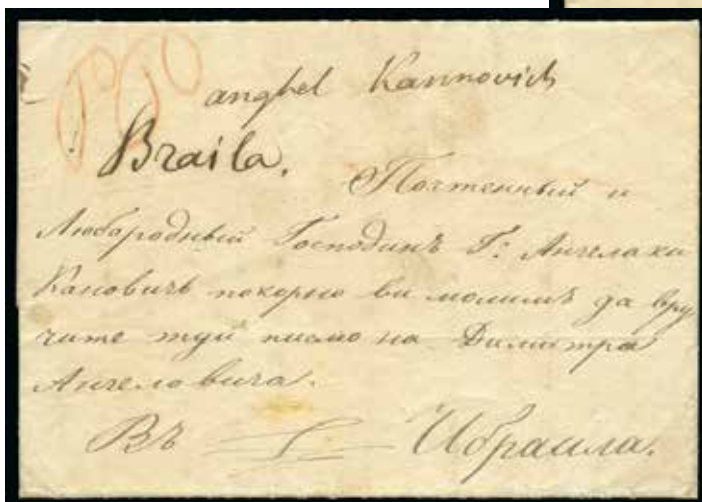 anghel Kannovich
Braila.
Почтенный и
Любородный Господинъ Г: Ангелаки
Кановичъ покорно ви молимъ да вру
чите туй писмо на Димитра
Ангеловича.
Въ Ибраила.